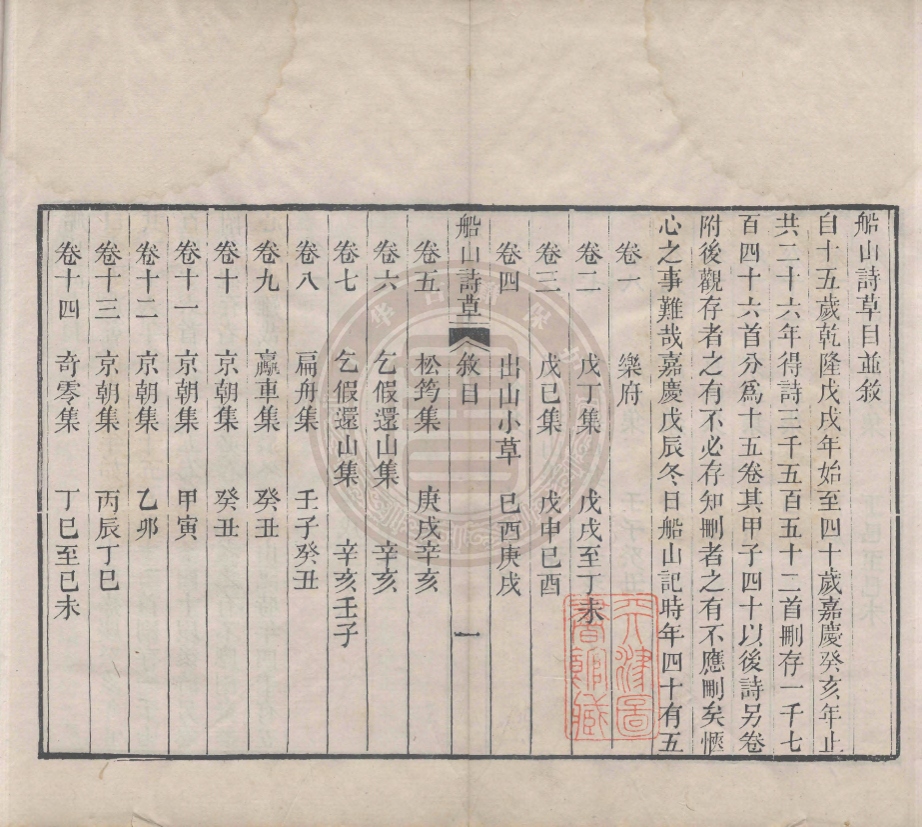 船山詩草目並敘
自十五歲乾隆戊戌年始至四十歲嘉慶癸亥年止
共二十六年得詩三千五百五十二首刪存一千七
百四十六首分爲十五卷其甲子四十以後詩另卷
附後觀存者之有不必存知刪者之有不應刪矣愜
心之事難哉嘉慶戊辰冬日船山記時年四十有五
卷一 樂府
卷二 戊丁集 戊戌至丁未
卷三 戊巳集 戊申巳酉
卷四 出山小草 巳酉庚戌
船山詩草 敘目 一
卷五 松筠集 庚戌辛亥
卷六 乞假還山集 辛亥
卷七 乞假還山集 辛亥壬子
卷八 扁舟集 壬子癸丑
卷九 羸車集 癸丑
卷十 京朝集 癸丑
卷十一 京朝集 甲寅
卷十二 京朝集 乙夘
卷十三 京朝集 丙辰丁巳
卷十四 奇零集 丁巳至巳未
天津圖
書館藏